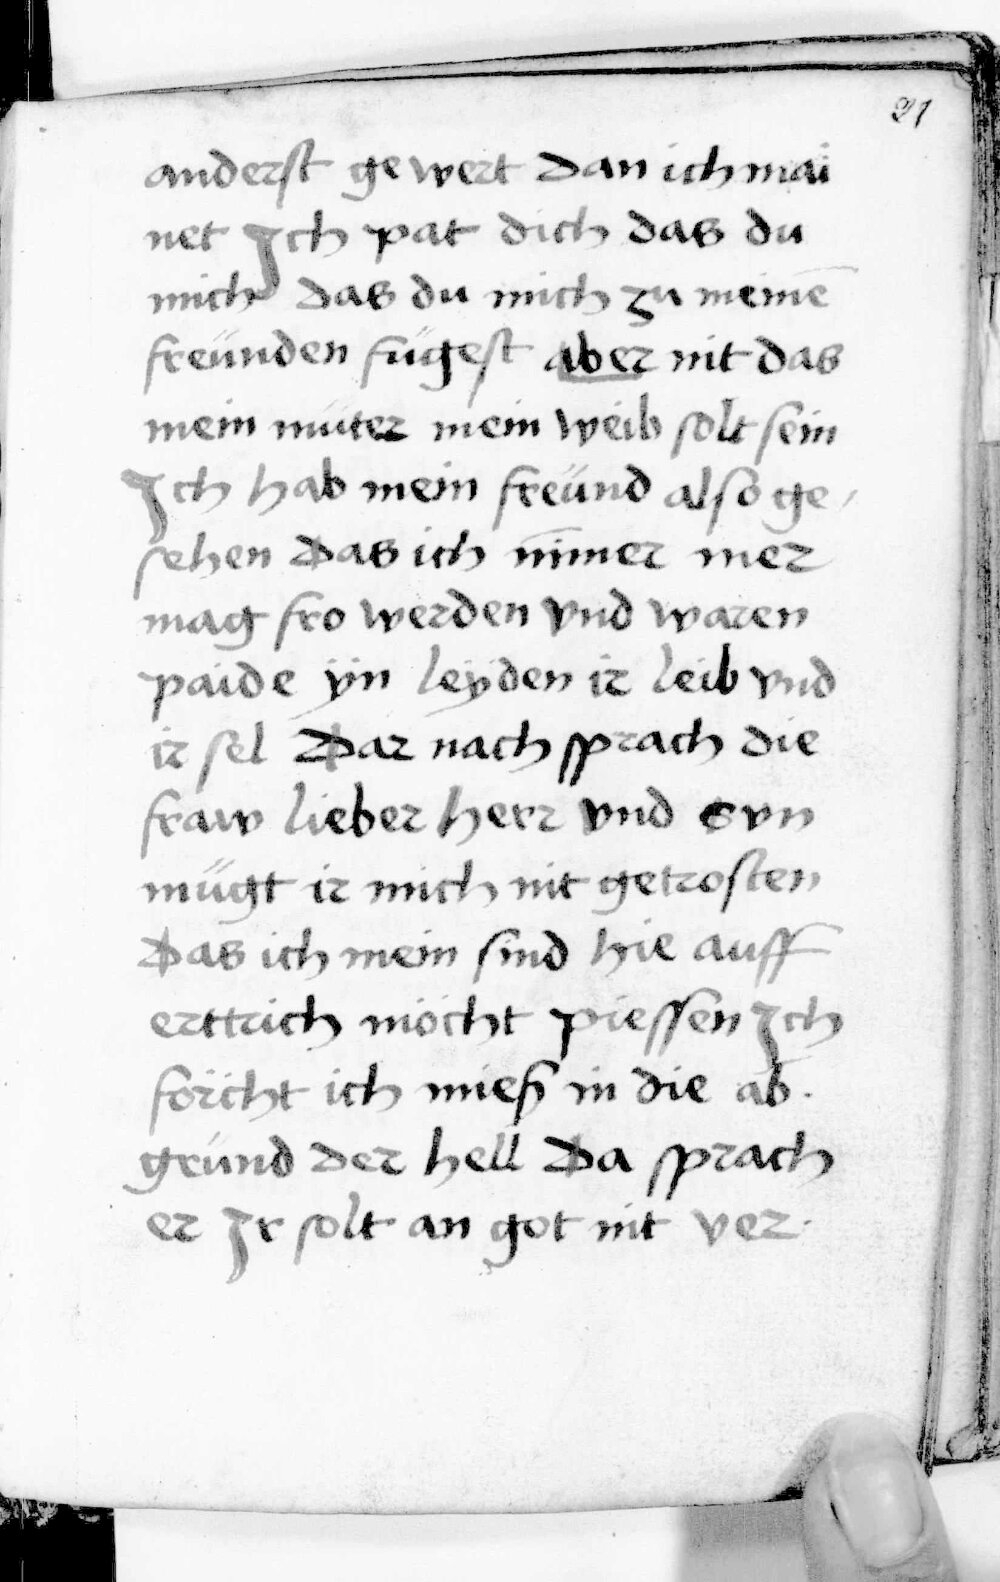 21
anderst gewert dan ich mai
net Ich pat dich das du
mich das du mich zu meinē
freünden fügest aber nit das
mein müter mein weib solt sein
Ich hab mein freünd also ge-
sehen Das ich nīmer mer
mag fro werden vnd waren
paide ÿn leÿden ir leib vnd
ir sel Dar nach sprach die
fraw lieber herr vnd Svn
mügt ir mich nit getrosten
Das ich mein sind hie auff
erttrich möcht piessen Ich
förcht ich mieß in die ab-
gründ der hell Da sprach
er Ir solt an got nit ver-